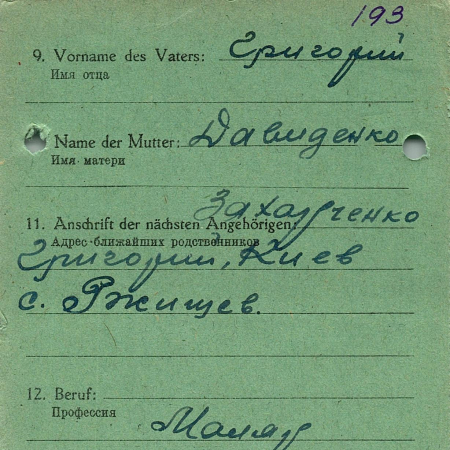 193
9. Vorname des Vaters: Григорий
Имя отца
Name der Mutter: Давиденко
Имя матери
Захарченко
11. Anschrift der nächsten Angehörigen:
Адрес ближайших родственников
Григорий, Киев
с. Ржищев.
12. Beruf:
Профессия
Маляр